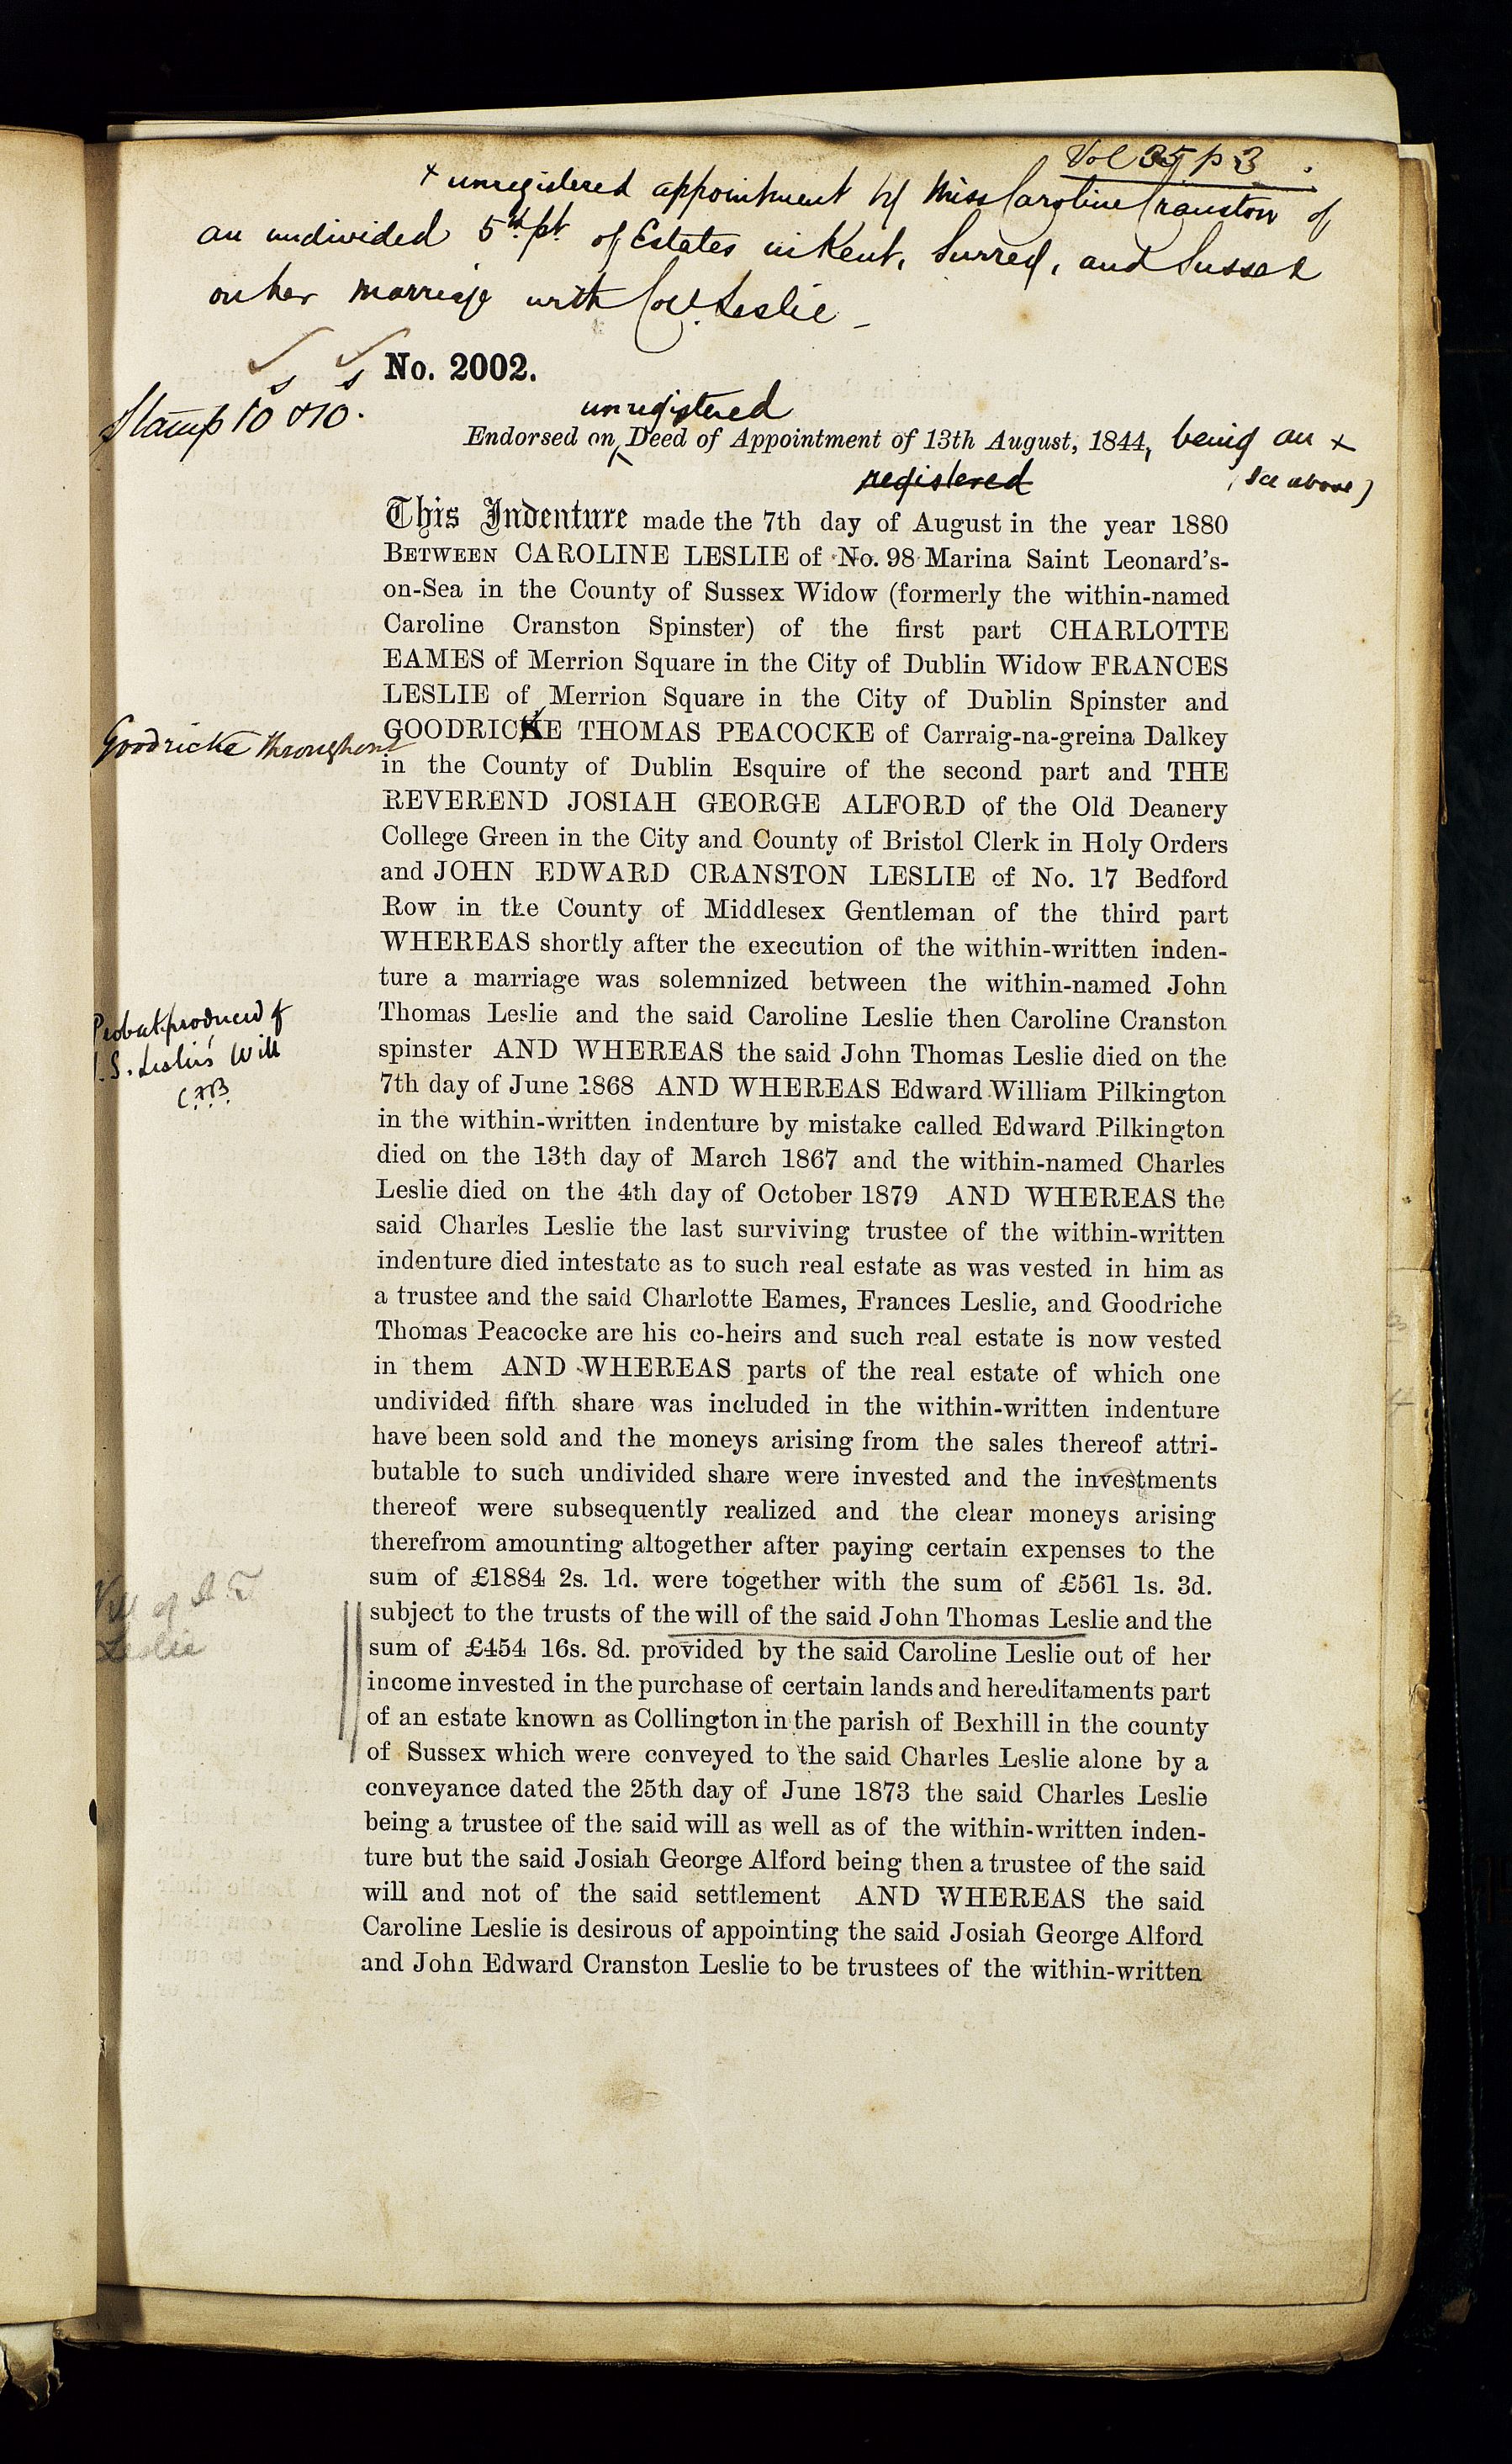 Vol 35 p 3
+ unregistered appointment by Miss Caroline Cranston of
an undivided 5th pt. of Estates in Kent, Surrey, and Sussex
on her marriage with Col. Leslie
No. 2002.
s s
Stamp 10 & 10.
unregistered
Endorsed on Deed of Appointment of 13th August, 1844, being an +
registered
(See above)
This Indenture made the 7th day of August in the year 1880
BETWEEN CAROLINE LESLIE of No. 98 Marina Saint Leonard's-
on-Sea in the County of Sussex Widow (formerly the within-named
Caroline Cranston Spinster) of the first part CHARLOTTE
EAMES of Merrion Square in the City of Dublin Widow FRANCES
LESLIE of Merrion Square in the City of Dublin Spinster and
GOODRICKE THOMAS PEACOCKE of Carraig-na-greina Dalkey
Goodricke throughout
in the County of Dublin Esquire of the second part and THE
REVEREND JOSIAH GEORGE ALFORD of the Old Deanery
College Green in the City and County of Bristol Clerk in Holy Orders
and JOHN EDWARD CRANSTON LESLIE of No. 17 Bedford
Row in the County of Middlesex Gentleman of the third part
WHEREAS shortly after the execution of the within-written inden-
ture a marriage was solemnized between the within-named John
Thomas Leslie and the said Caroline Leslie then Caroline Cranston
spinster AND WHEREAS the said John Thomas Leslie died on the
7th day of June 1868 AND WHEREAS Edward William Pilkington
in the within-written indenture by mistake called Edward Pilkington
died on the 13th day of March 1867 and the within-named Charles
Leslie died on the 4th day of October 1879 AND WHEREAS the
said Charles Leslie the last surviving trustee of the within-written
indenture died intestate as to such real estate as was vested in him as
a trustee and the said Charlotte Eames, Frances Leslie, and Goodriche
Thomas Peacocke are his co-heirs and such real estate is now vested
in them AND WHEREAS parts of the real estate of which one
undivided fifth share was included in the within-written indenture
have been sold and the moneys arising from the sales thereof attri-
butable to such undivided share were invested and the investments
thereof were subsequently realized and the clear moneys arising
therefrom amounting altogether after paying certain expenses to the
sum of £1884 2s. 1d. were together with the sum of £561 1s. 3d.
subject to the trusts of the will of the said John Thomas Leslie and the
sum of £454 16s. 8d. provided by the said Caroline Leslie out of her
income invested in the purchase of certain lands and hereditaments part
of an estate known as Collington in the parish of Bexhill in the county
of Sussex which were conveyed to the said Charles Leslie alone by a
conveyance dated the 25th day of June 1873 the said Charles Leslie
being a trustee of the said will as well as of the within-written inden-
ture but the said Josiah George Alford being then a trustee of the said
will and not of the said settlement AND WHEREAS the said
Caroline Leslie is desirous of appointing the said Josiah George Alford
and John Edward Cranston Leslie to be trustees of the within-written
Probate produced of
Leslie's Will
Will of J. T.
Leslie